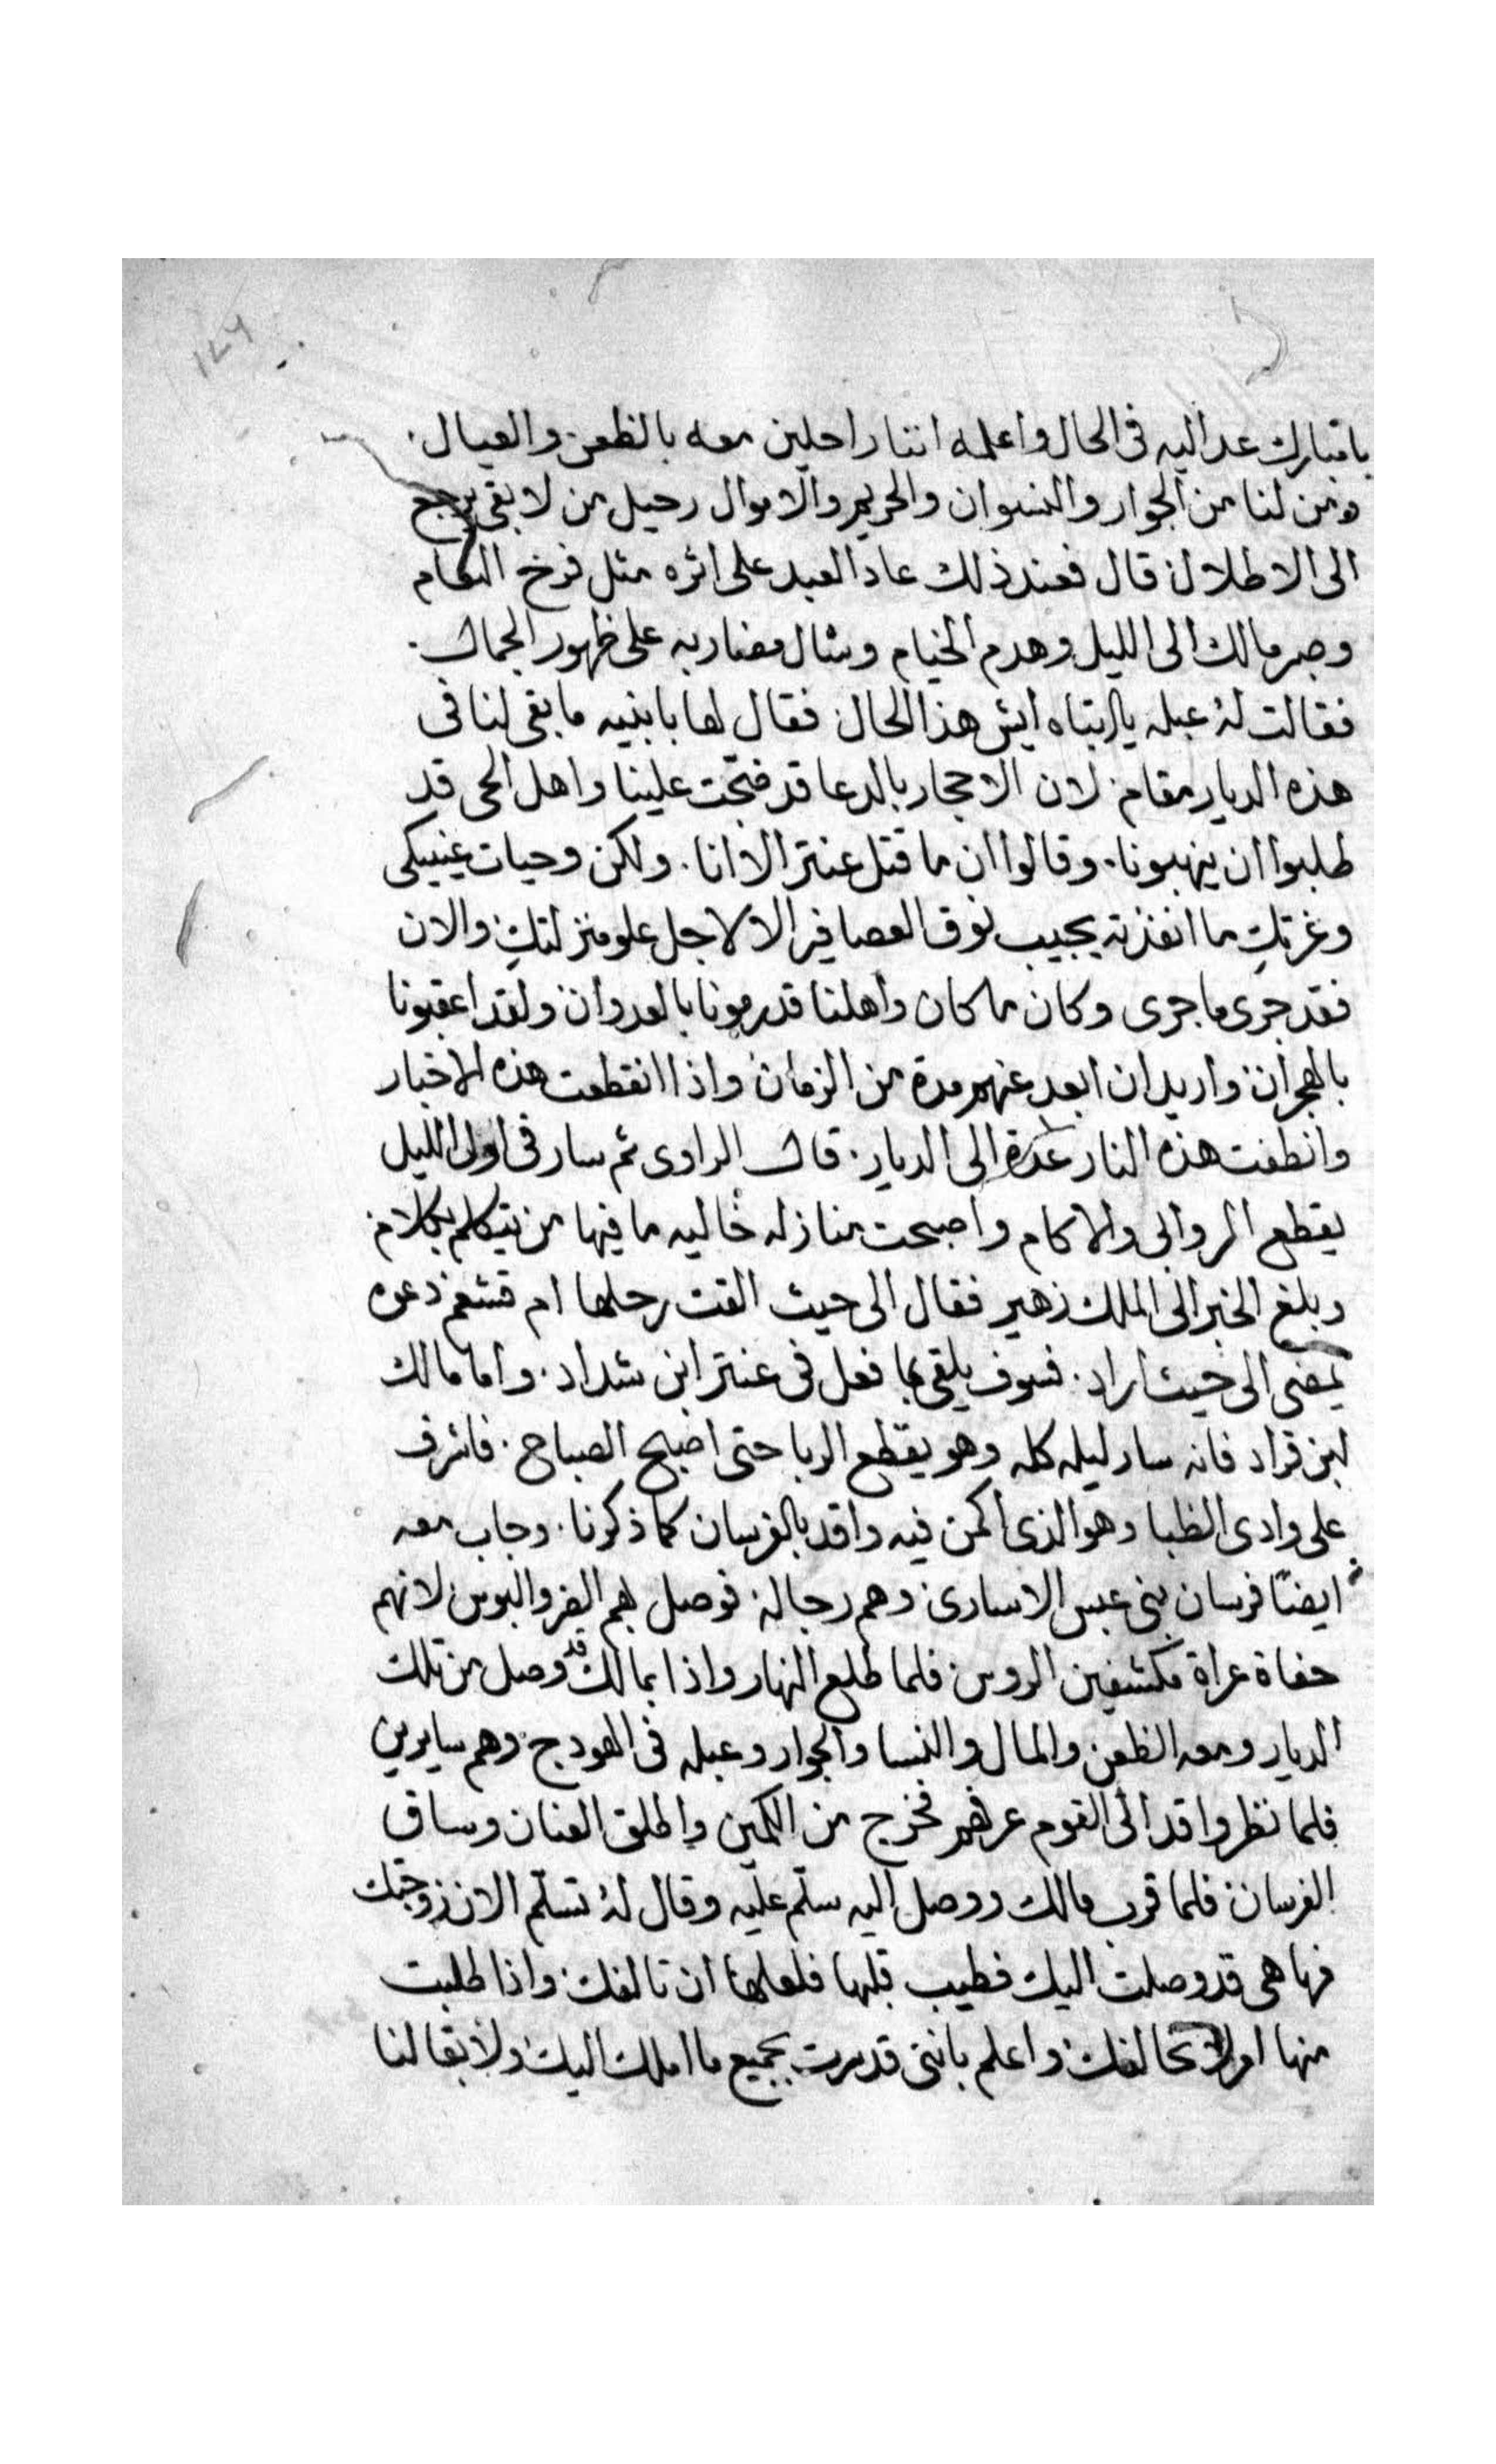 ١٤٩
يا مبارك عد اليه فى الحال واعلمه اننا راحلين معه بالظعن والعيال
ومن لنا من الجوار والنسوان والحريم والاموال رحيل من لا بقى يرجع
الى الاطلال قال فعند ذلك عاد العبد على اثره مثل فرخ النعام
وصبر مالك الى الليل وهدم الخيام وشال مضاربه على ظهور الجمال
فقالت له عبله يا ابتاه ايش هذا الحال فقال لها يا بنيه ما بقى لنا فى
هذه الديار مقام لان الاحجار بالدعا قد فتحت علينا واهل الحى قد
طلبوا ان ينهبونا وقالوا ان ما قتل عنتر الا انا ولكن وحيات عينيكى
وغرتك ما انفذته يجيب نوق العصافير الا لاجل علو منزلتك والان
فقد جرى ما جرى وكان ما كان واهلنا قد رمونا بالعدوان ولقد اعقبونا
بالهجران واريد ان ابعد عنهم مدة من الزمان واذا انقطعت هذه الاخبار
وانطفت هذه النار عدنا الى الديار قال الراوى ثم سار فى اول الليل
يقطع الروابى والاكام واصبحت منازله خاليه ما فيها من يتكلم بكلام
وبلغ الخبر الى الملك زهير فقال الى حيث القت رحلها ام قشعم دعوه
يمضى الى حيث اراد فسوف يلقى بما فعل فى عنتر ابن شداد واما مالك
ابن قراد فانه سار ليله كله وهو يقطع الربا حتى اصبح الصباح فاشرف
على وادى الظبا وهو الذى اكمن فيه واقد بالفرسان كما ذكرنا وجاب معه
ايضًا فرسان بنى عبس الاسارى وهم رجاله فوصل لهم الضر والبوس لانهم
حفاة عراة مكشفين الروس فلما طلع النهار واذا بمالك قد وصل من تلك
الديار ومعه الظعن والمال والنسا والجوار وعبله فى الهودج وهم سايرين
فلما نظر واقد الى القوم عرفهم فخرج من الكمين واطلق العنان وساق
الفرسان فلما قرب مالك ووصل اليه سلّم عليه وقال له تسلّم الان زوجتك
فها هى قد وصلت اليك فطيب قلبها فلعلها ان تالفك واذا طلبت
منها امرا لا تخالفك واعلم باننى قد سرت بجميع ما املك اليك ولا بقا لنا